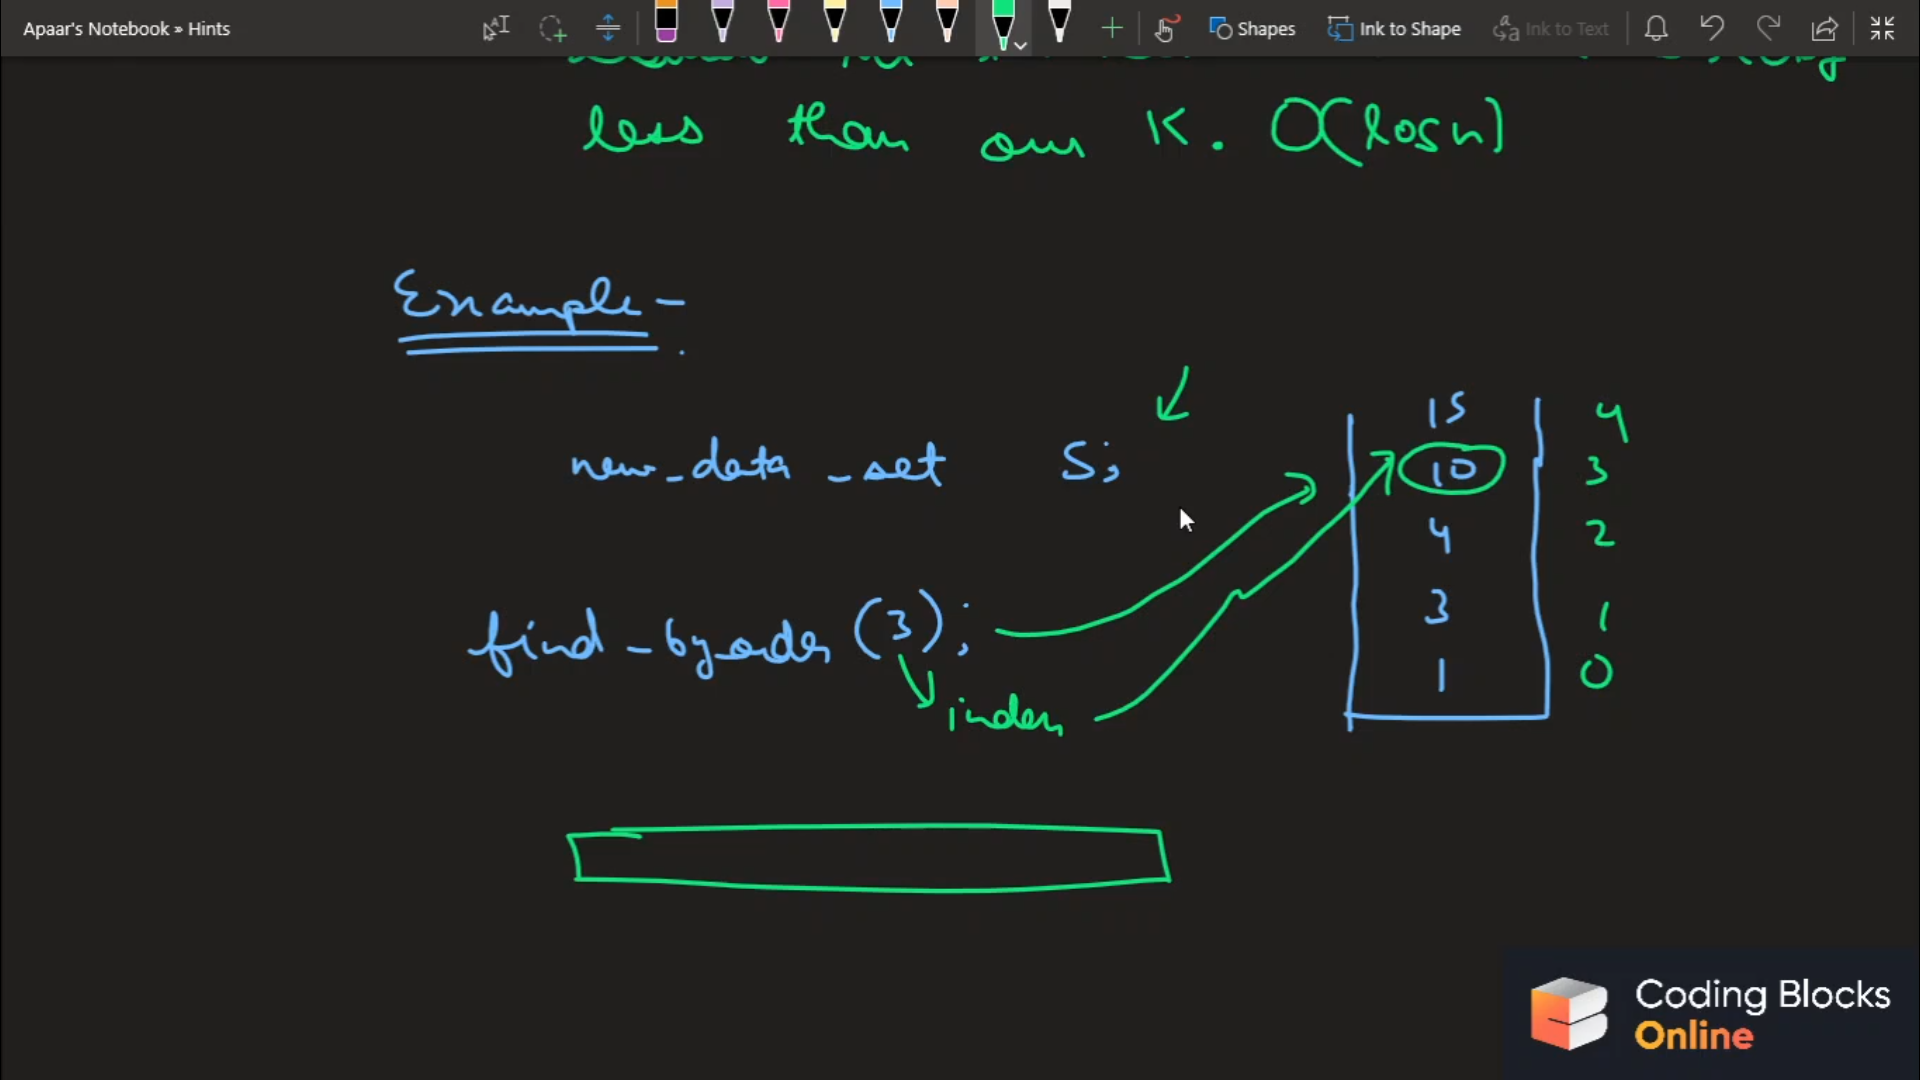 Apaar's Notebook » Hints
Shapes
Ink to Shape
Ink to Text
less than our K. O(logn)
Example-
new_data_set S;
find_by_order (3);
index
15 4
10 3
4 2
3 1
1 0
Coding Blocks
Online